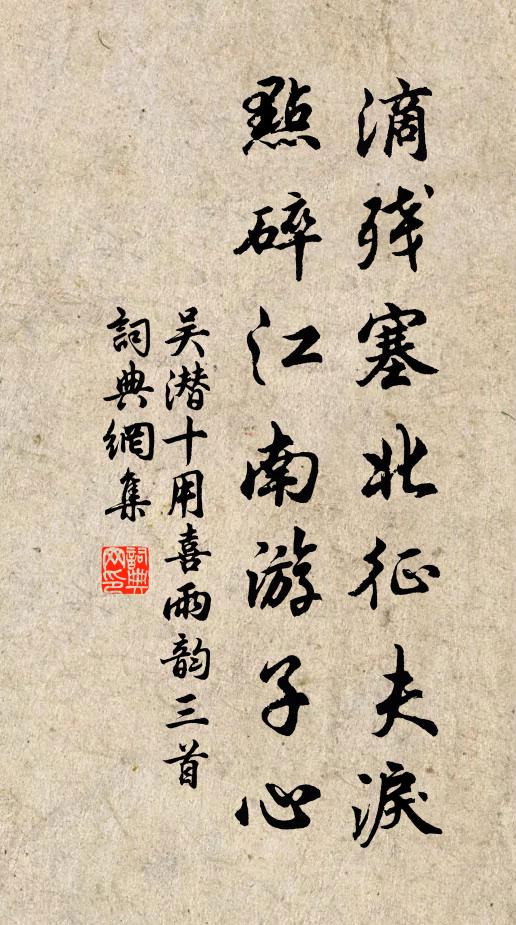 滴残塞北征夫淚
點碎江南游子心
吴潜十用喜雨韵三首
詞典網集
詞典網印